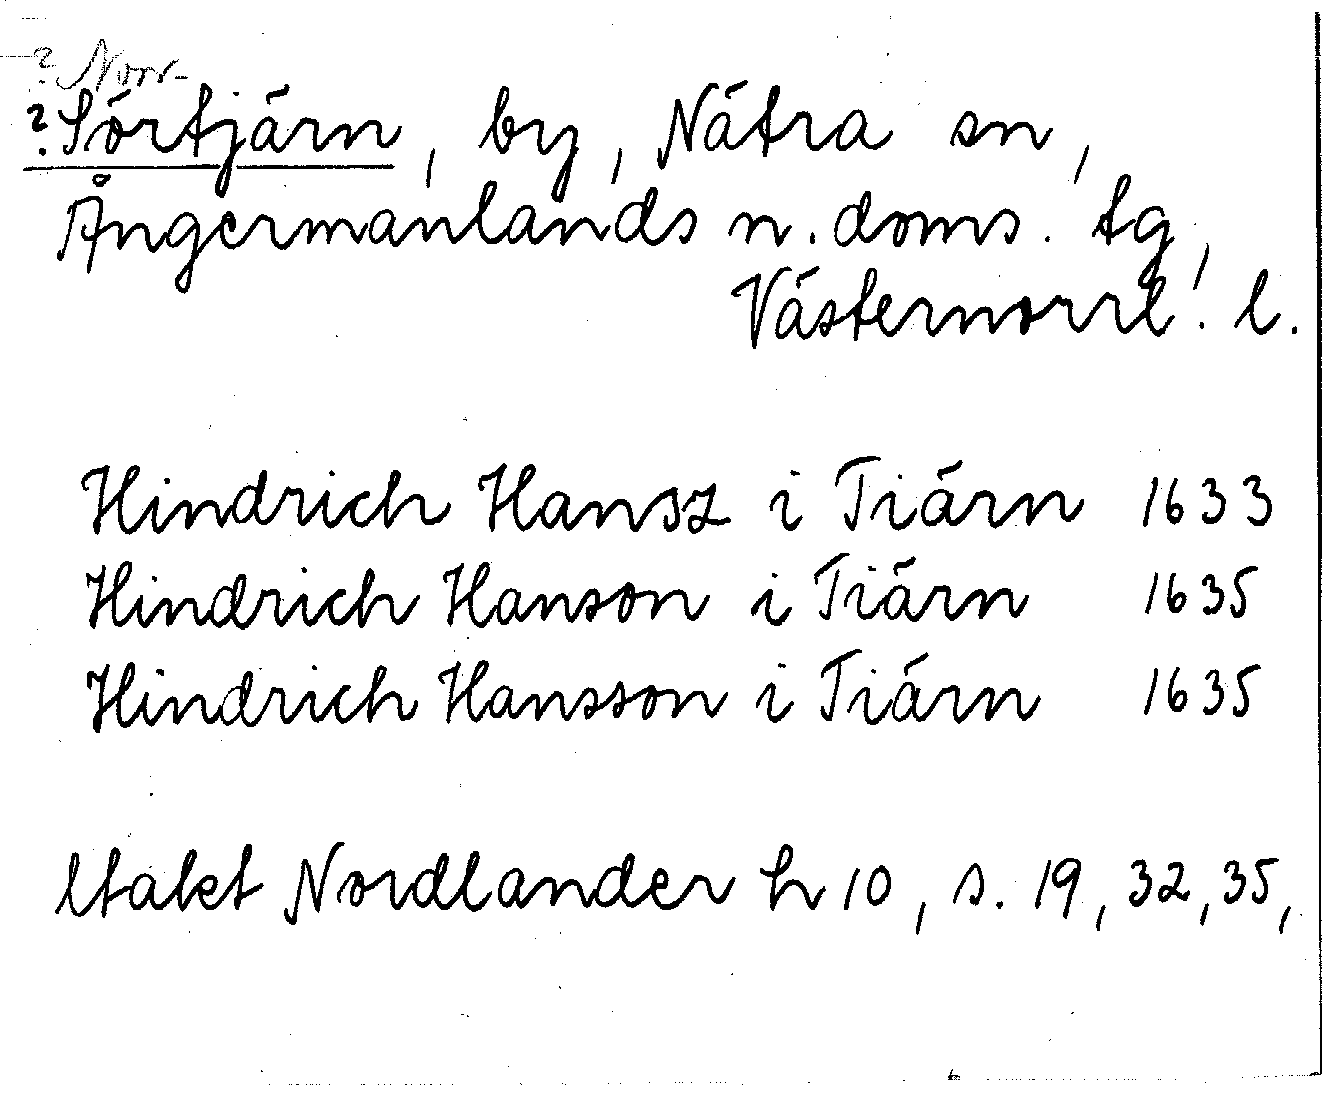 ? Norr-
? Sörtjärn, by, Nätra sn,
Ångermanlands n. doms. tg,
Västernorrl. l.
Hindrich Hansz i Tiärn 1633
Hindrich Hanson i Tiärn 1635
Hindrich Hansson i Tiärn 1635
Nordlander h 10, s. 19, 32, 35,